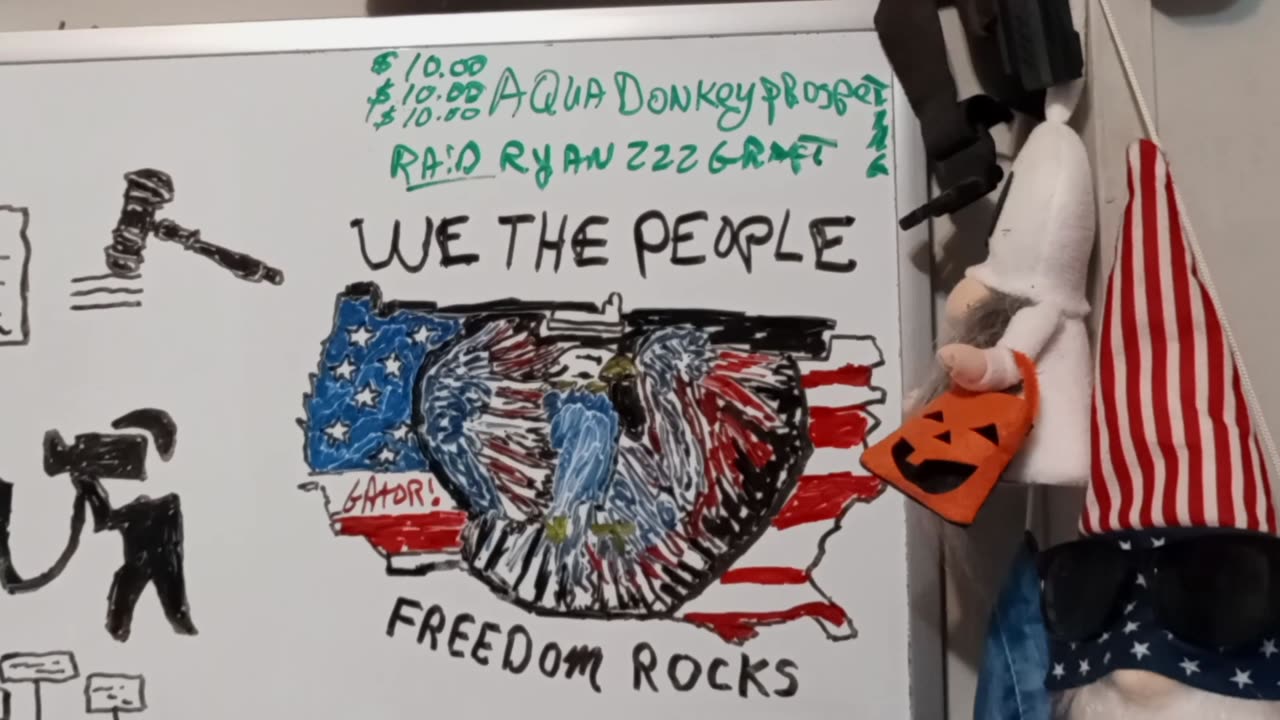 $10.00
$10.00 AQUA DONKEY PROSPECT
$10.00
RAID RYAN ZZZ GRAFT
WE THE PEOPLE
GATOR!
FREEDOM ROCKS